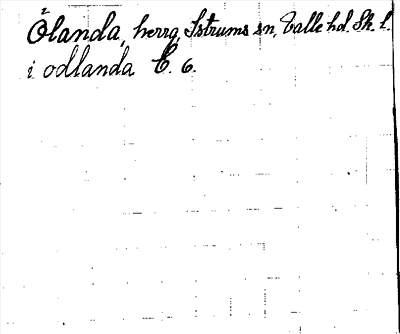 2
Ölanda, herrg, Istrums sn, Valle hd. Sk. l.
i odlanda C. 6.